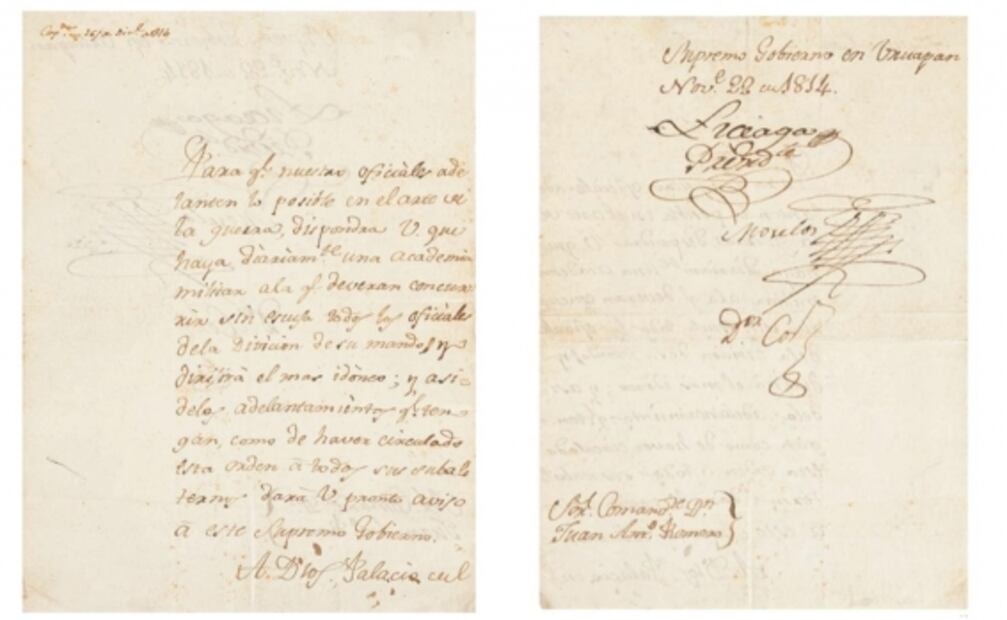 de 1814
Para q.e nuestros oficiales ade
lanten lo posible en el arte de
la guerra, dispondra V. que
haya diàriam.te una academia
militar a la q.e deveran concur
rir sin escusa todos los oficiàles
dela Divicion de su mando, y
dirijirà el mas idòneo; y asi
delos adelantamientos q.e ten
gan, como de haver circulado
esta orden à todos sus subal
ternos darà V. pronto aviso
à este Supremo Gobierno.
A. Dios. Palacio del
Supremo Gobierno en Uruapan
Nov.e 22 de 1814.
Liceaga
Presid.te
Morelos
D.or Cos
Sor. Comand.te Dn.
Juan Ant.o Romero